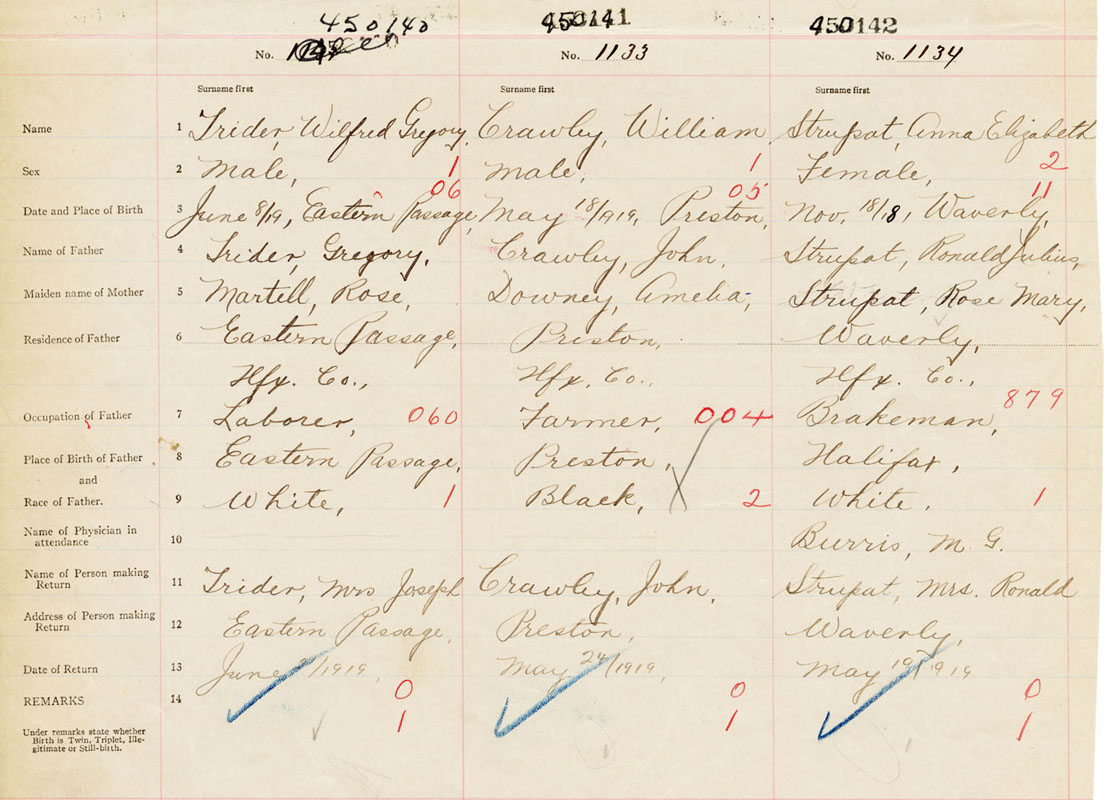 450140 450141 450142
No. No. 1133 No. 1134
Surname first Surname first Surname first
Name 1 Trider, Wilfred Gregory, Crawley, William, Strupat, Anna Elizabeth
Sex 2 Male, 1 male, 1 Female, 2
06 05 11
Date and Place of Birth 3 June 8/19, Eastern Passage, May 18/1919, Preston, Nov. 18/18, Waverly,
Name of Father 4 Trider, Gregory, Crawley, John, Strupat, Ronald Julius,
Maiden name of Mother 5 Martell, Rose, Downey, Amelia, Strupat, Rose Mary,
Residence of Father 6 Eastern Passage, Preston, Waverly,
Hfx. Co., Hfx. Co., Hfx. Co.,
Occupation of Father 7 Laborer, 060 Farmer, 004 Brakeman, 879
Place of Birth of Father 8 Eastern Passage, Preston, Halifax,
and
Race of Father. 9 White, 1 Black, 2 White. 1
Name of Physician in
attendance 10 Burris, M. G.
Name of Person making
Return 11 Trider, Mrs Joseph Crawley, John, Strupat, Mrs. Ronald
Address of Person making
Return 12 Eastern Passage, Preston, Waverly,
Date of Return 13 June /1919, May 24/1919, May 19/1919
REMARKS 14 0 0 0
1 1 1
Under remarks state whether
Birth is Twin, Triplet, Ille-
gitimate or Still-birth.